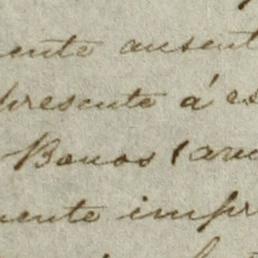 ente ausent
presente á es
Bonos (are
mente impr